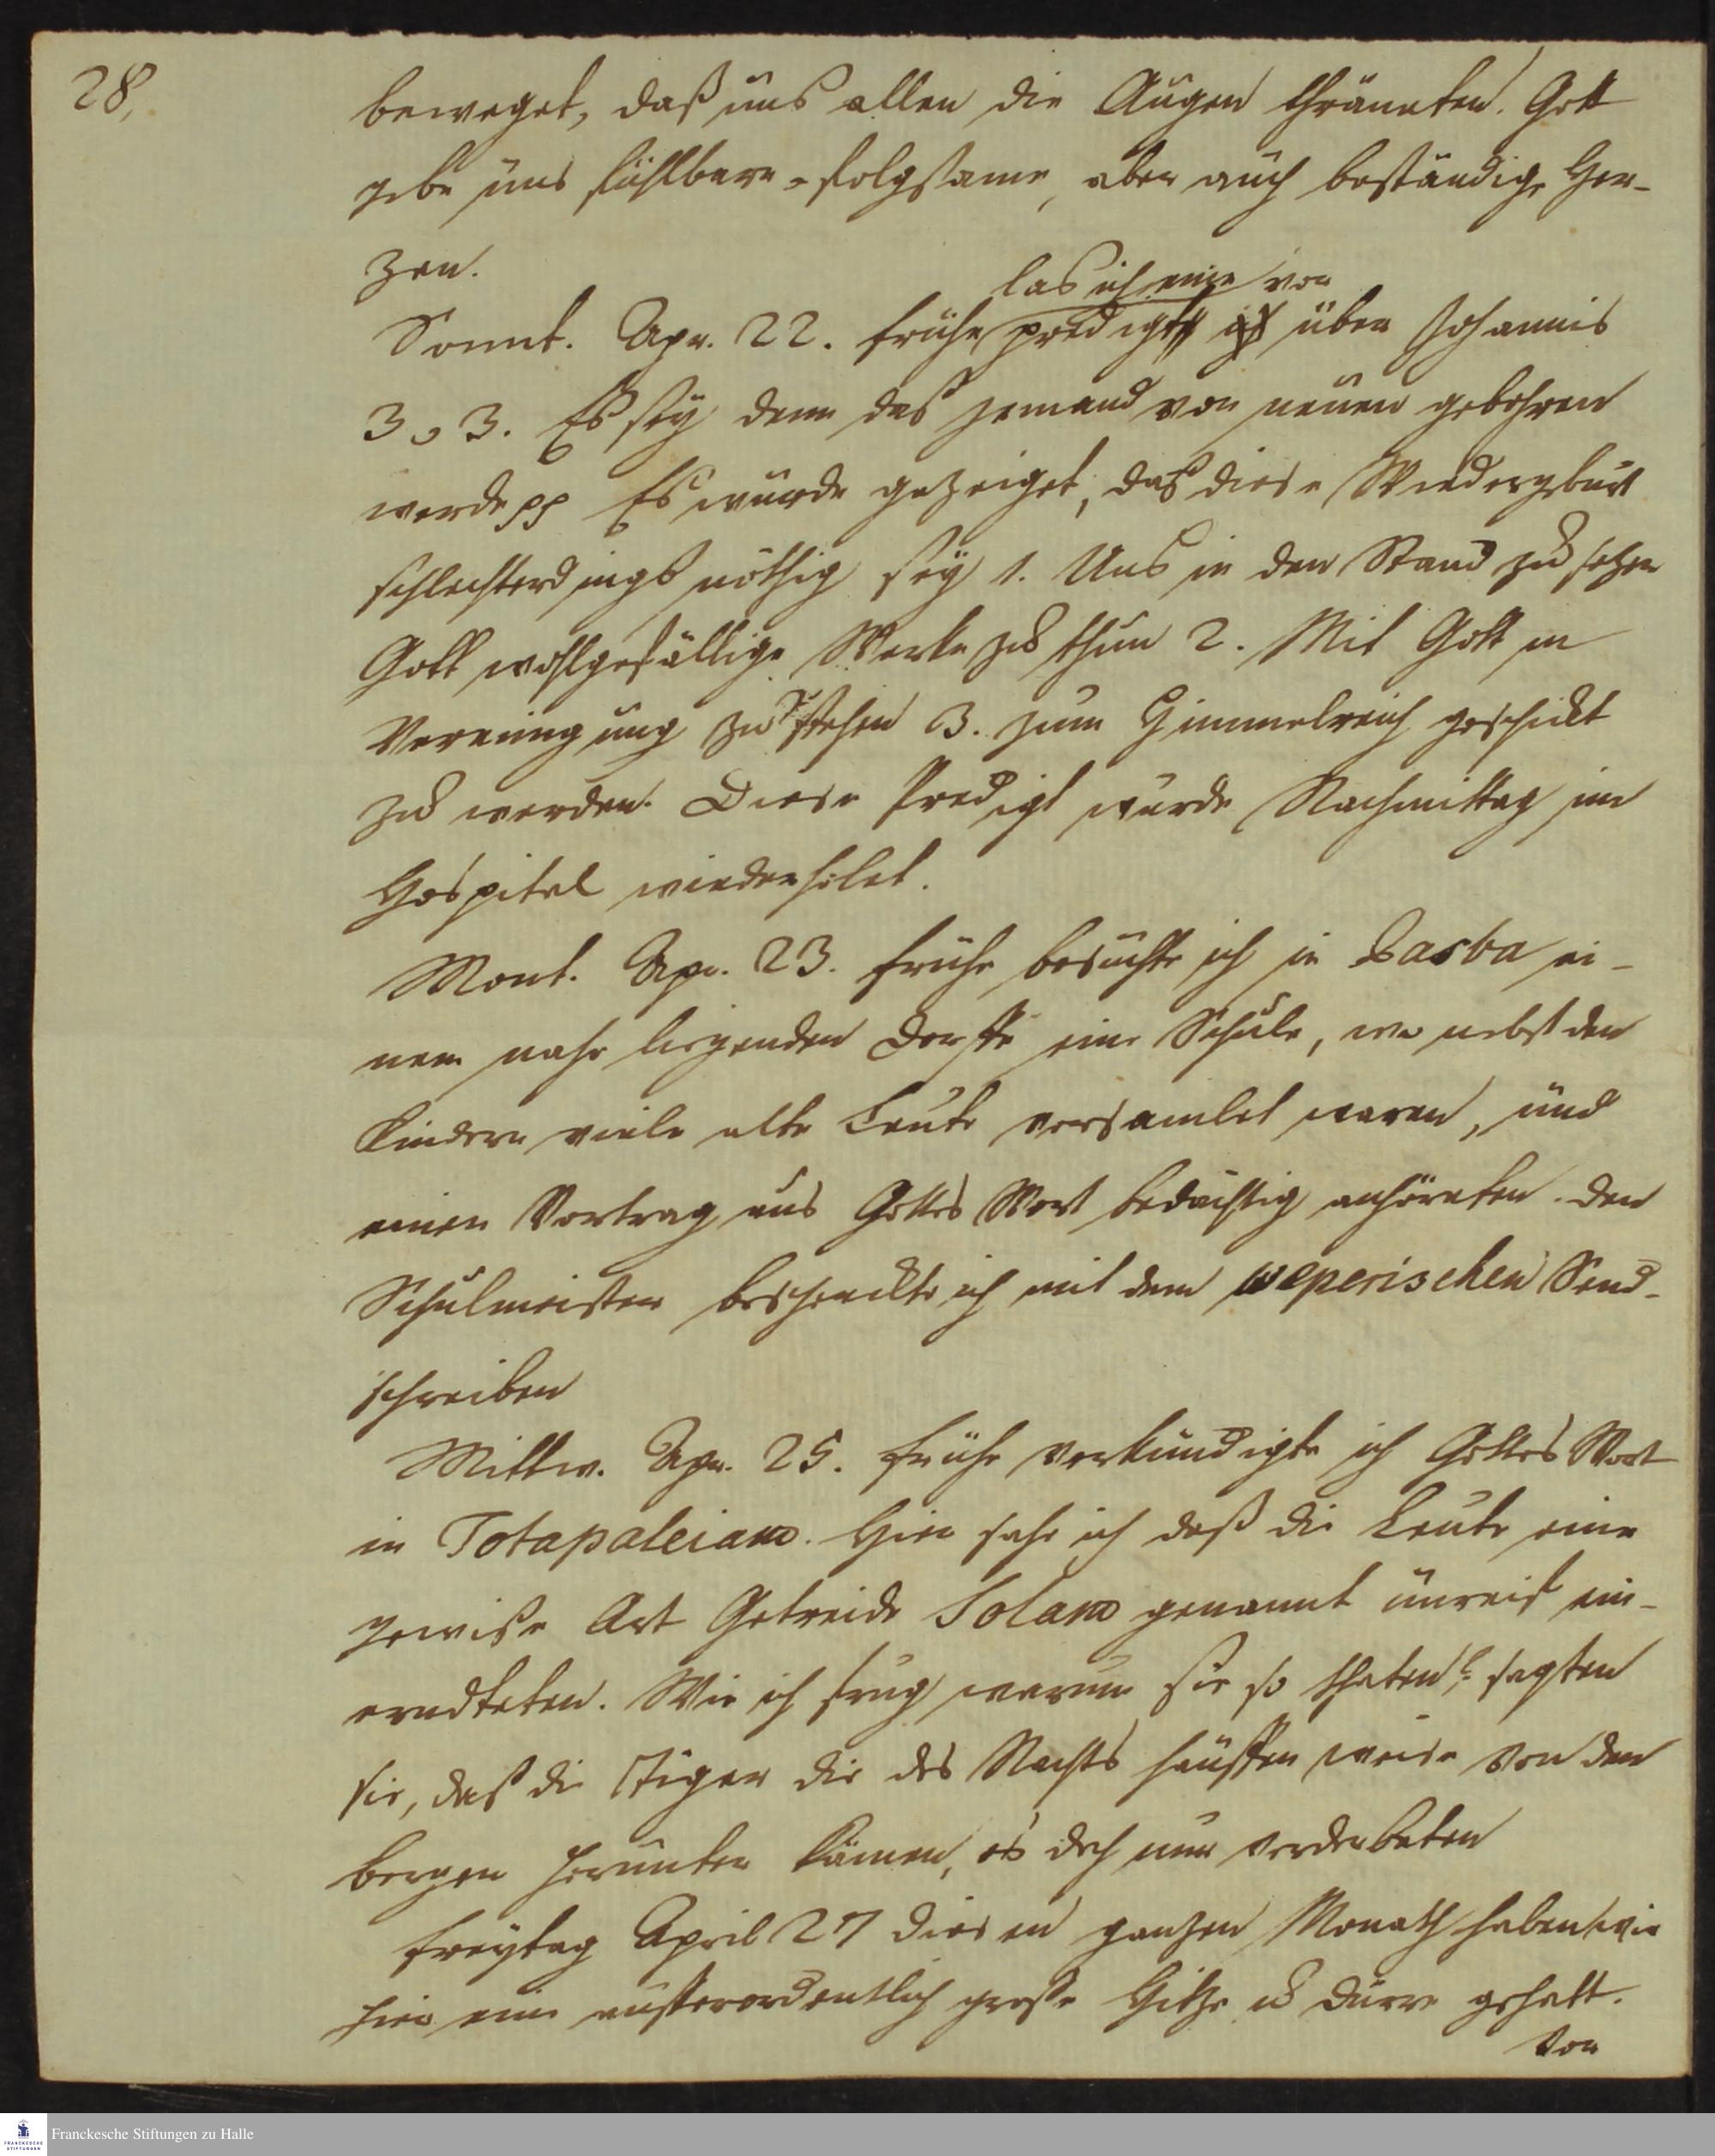 28.
beweget, daß uns allen die Augen thräneten. Gott
gebe uns fühlbare folgsame, aber auch beständige Her-
zen.
las ich eine von
Sonnt. Apr. 22. frühe predigt über Johannis
3, 3. Es sey denn das jemand von neuen gebohren
werde pp Es wurde gezeiget, das diese Wiedergeburt
schlechterdings nöthig sey 1. Uns in den Stand zu setzen
Gott wohlgefällige Werke zu thun 2. Mit Gott in
Vereinigung zu stehen 3. zum Himmelreich geschikt
zu werden. Diese Predigt wurde Nachmittag im
Hospital wiederholet.
Mont. Apr. 23. frühe besuchte ich in ei-
nem nahe liegenden Dorffe eine Schule, wo nebst den
Kindern viele alte Leute versamlet waren, und
einen Vortrag aus Gottes Wort bedächtig anhöreten. Den
Schulmeister beschenckte ich mit dem Send-
schreiben
Mittw. Apr. 25. frühe verkündigte ich Gottes Wort
in Totapaleiam. Hier sahe ich daß die Leute eine
gewiße Art Getreide Solam genannt unreif ein-
erndteten. Wie ich frug warum sie so thäten? sagten
sie, daß die Tiger die des Nachts hauffen weise von den
bergen herunter kämen, es doch nur verderbeten
Freytag April 27 diesen ganzen Monath haben wir
hier eine ausserordentlich grosse Hitze u Dürre gehabt.
Von
Franckesche Stiftungen zu Halle
FRANCKESCHE
STIFTUNGEN